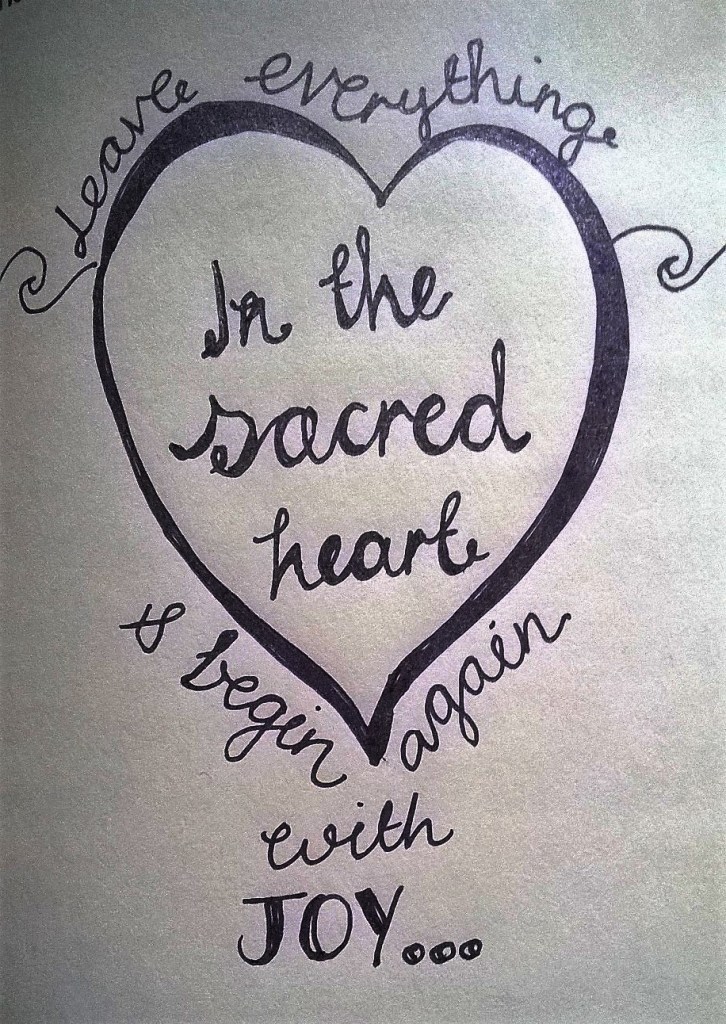 Leave everything
In the
sacred
heart
& begin again
with
JOY...